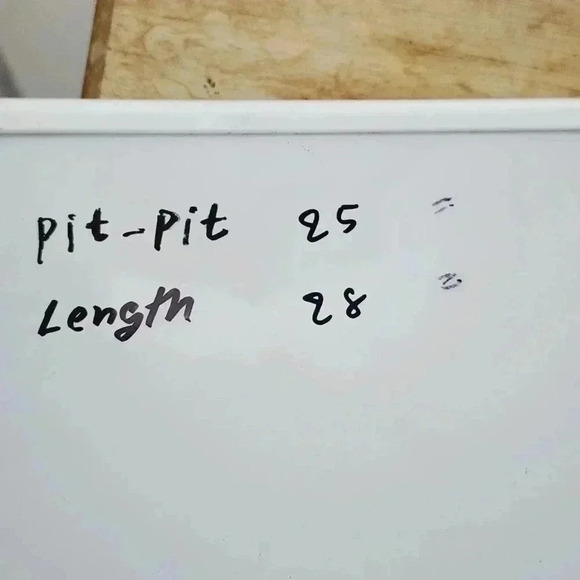 Pit-Pit 25 "
Length 28 "